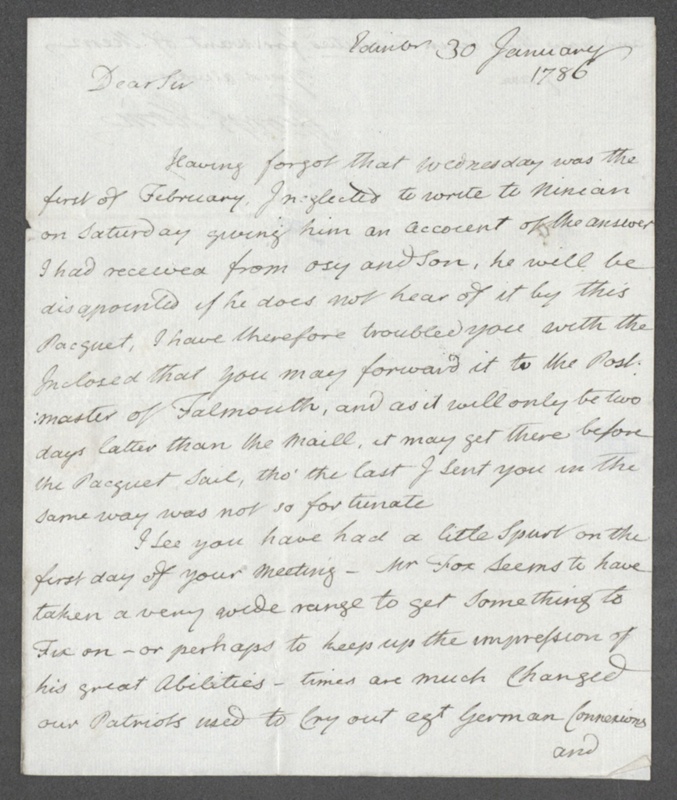 Edinbr 30 January
1786
Dear Sir
Having forgot that Wednesday was the
first of February. I neglected to write to Ninian
on Saturday giving him an account of the answer
I had received from Osy and Son, he will be
disapointed if he does not hear of it by this
Pacquet, I have therefore troubled you with the
Inclosed that you may forward it to the Post-
:master of Falmouth, and as it will only be two
days latter than the Maill, it may get there before
the Pacquet Sail, tho' the last I Sent you in the
same way was not so fortunate
I See you have had a little Spurt on the
first day of your Meeting - Mr Fox Seems to have
taken a very wide range to get Something to
Fix on - or perhaps to keep up the impression of
his great Abilities - times are much Changed
our Patriots used to Cry out agt German Connexions
and